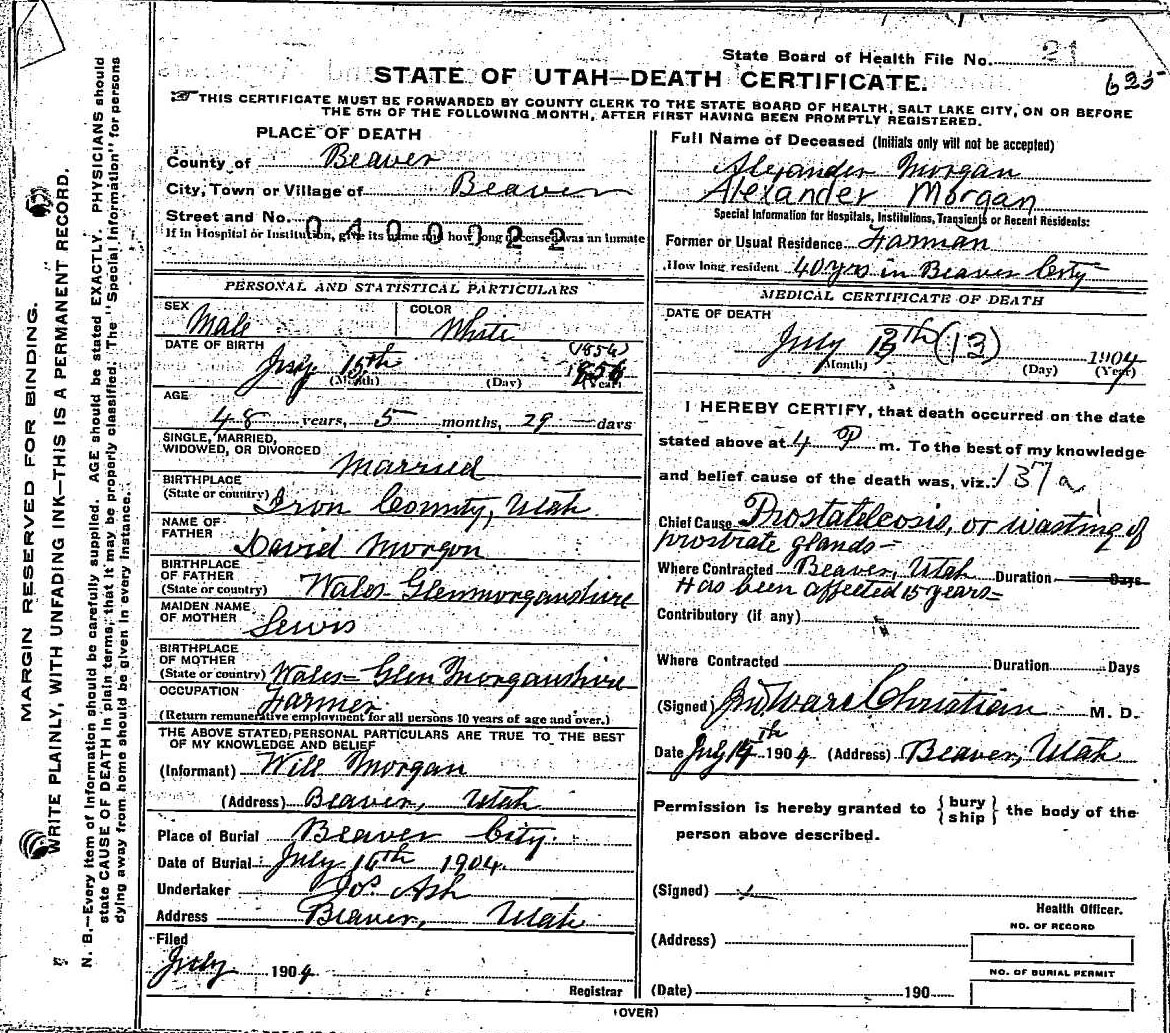 State Board of Health File No. 21
625
STATE OF UTAH—DEATH CERTIFICATE.
THIS CERTIFICATE MUST BE FORWARDED BY COUNTY CLERK TO THE STATE BOARD OF HEALTH, SALT LAKE CITY, ON OR BEFORE
THE 5TH OF THE FOLLOWING MONTH, AFTER FIRST HAVING BEEN PROMPTLY REGISTERED.
MARGIN RESERVED FOR BINDING.
WRITE PLAINLY, WITH UNFADING INK—THIS IS A PERMANENT RECORD.
N. B.—Every item of Information should be carefully supplied. AGE should be stated EXACTLY. PHYSICIANS should
state CAUSE OF DEATH in plain terms, that it may be properly classified. The "Special Information" for persons
dying away from home should be given in every instance.
PLACE OF DEATH
County of Beaver
City, Town or Village of Beaver
Street and No.
0400022
If in Hospital or Institution, give its name and how long deceased was an inmate
PERSONAL AND STATISTICAL PARTICULARS
SEX Male
COLOR White
DATE OF BIRTH
(1856)
15th 1856
(Month) (Day) (Year)
AGE
48 years, 5 months, 29 days
SINGLE, MARRIED,
WIDOWED, OR DIVORCED Married
BIRTHPLACE
(State or country) Iron County, Utah.
NAME OF
FATHER David Morgon
BIRTHPLACE
OF FATHER
(State or country) Wales Glenmorganshire
MAIDEN NAME
OF MOTHER Lewis
BIRTHPLACE
OF MOTHER
(State or country) Wales Glen Morganshire
OCCUPATION Farmer
(Return remunerative employment for all persons 10 years of age and over.)
THE ABOVE STATED PERSONAL PARTICULARS ARE TRUE TO THE BEST
OF MY KNOWLEDGE AND BELIEF
(Informant) Will Morgan
(Address) Beaver, Utah
Place of Burial Beaver City.
Date of Burial July 16th 1904.
Undertaker Jos Ash
Address Beaver, Utah
Filed
July 1904
Registrar
Full Name of Deceased (Initials only will not be accepted)
Alexander Morgan
Alexander Morgan
Special Information for Hospitals, Institutions, Transients or Recent Residents:
Former or Usual Residence Farman
How long resident 40 yrs in Beaver City
MEDICAL CERTIFICATE OF DEATH
DATE OF DEATH
July 13th (13) 1904
(Month) (Day) (Year)
I HEREBY CERTIFY, that death occurred on the date
stated above at 4 P m. To the best of my knowledge
and belief cause of the death was, viz.: 137a
Chief Cause Prostatelcosis, or wasting of
prostrate glands—
Where Contracted Beaver, Utah Duration Days
Has been affected 15 years—
Contributory (if any)
Where Contracted Duration Days
(Signed) Ward Christian M. D.
Date July 14th 1904 (Address) Beaver, Utah
Permission is hereby granted to { bury ship } the body of the
person above described.
(Signed)
Health Officer.
(Address)
NO. OF RECORD
NO. OF BURIAL PERMIT
(Date) 190
(OVER)